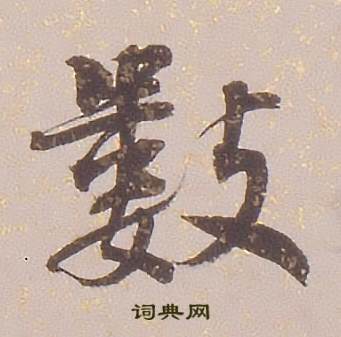 數
词典网